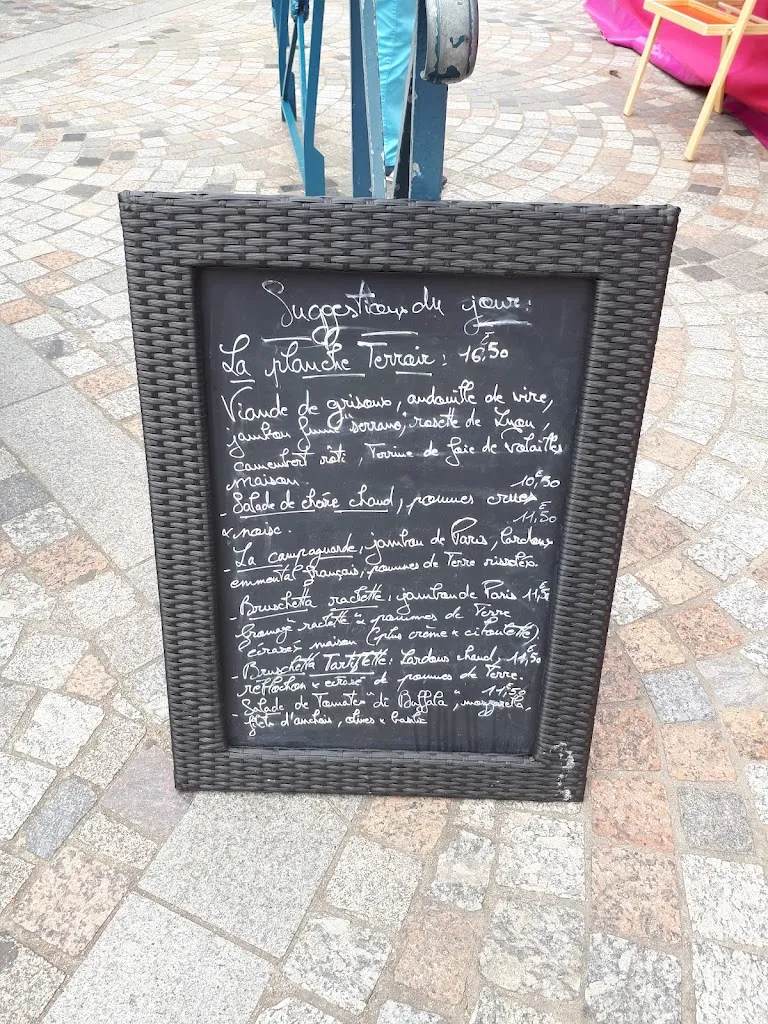 Suggestions du jour :
La planche Terroir : 16,50 €
Viande de grisons, andouille de vire,
jambon fumé serrano, rosette de Lyon,
camembert rôti, Terrine de foie de volailles
maison.
10,50 €
- Salade de chèvre chaud, pommes crues
11,50 €
& noix
- La campagnarde, jambon de Paris, lardons
emmental français, pommes de Terre rissolées
- Bruschetta raclette : jambon de Paris 11,50 €
fromage raclette pommes de Terre
écrasée maison (+ plus creme & ciboulette)
- Bruschetta Tartiflette : Lardons chaud, 11,50 €
reblochon & écrasé de pommes de Terre.
11,50 €
- Salade de Tomates "di Buffala", mozzarella
filets d'anchois, olives & basilic